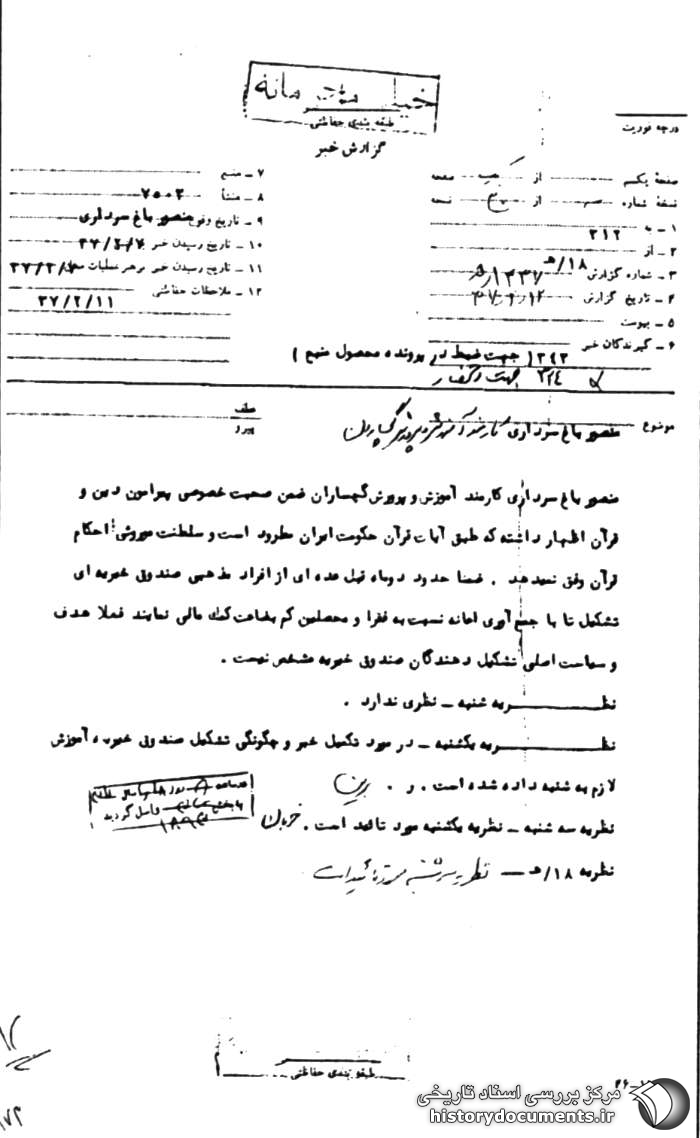 خیلی محرمانه
طبقه بندی حفاظتی
گزارش خبر
درجه فوریت
صفحهٔ یکم از یک صفحه
نسخهٔ شماره از نسخه
۱ ـ به ۳۱۲
۲ ـ از ۱۸/هـ
۳ ـ شماره گزارش
۴ ـ تاریخ گزارش
۵ ـ پیوست
۶ ـ گیرندگان خبر
۷ ـ منبع
۸ ـ منشأ منصور باغ سرداری
۹ ـ تاریخ وقوع
۱۰ ـ تاریخ رسیدن خبر
۱۱ ـ تاریخ رسیدن خبر برهبر عملیات
۱۲ ـ ملاحظات حفاظتی
۳۷/۲/۱۱
۳۴۳ ( جهت ضبط در پرونده محصول منبع )
۳۲۴ جهت
موضوع منصور باغ سرداری کارمند آموزش و پرورش گچساران
عطف
پیرو
منصور باغ سرداری کارمند آموزش و پرورش گچساران ضمن صحبت خصوصی پیرامون دین و
قرآن اظهار داشته که طبق آیات قرآن حکومت ایران مطرود است و سلطنت موروثی با احکام
قرآن وفق نمیدهد . ضمنا حدود دوماه قبل عده ای از افراد مذهبی صندوق خیریه ای
تشکیل تا با جمع آوری اعانه نسبت به فقرا و محصلین کم بضاعت کمک مالی نمایند فعلا هدف
و سیاست اصلی تشکیل دهندگان صندوق خیریه مشخص نیست .
نظـــــریه شنبه ـ نظری ندارد .
نظـــــریه یکشنبه ـ در مورد تکمیل خبر و چگونگی تشکیل صندوق خیریه آموزش
لازم به شنبه داده شده است . و .
نظریه سه شنبه ـ نظریه یکشنبه مورد تائید است .
واصل گردید
نظریه ۱۸/هـ ـ نظریه سه شنبه مورد تائید است
طبقه بندی حفاظتی
مرکز بررسی اسناد تاریخی
historydocuments.ir